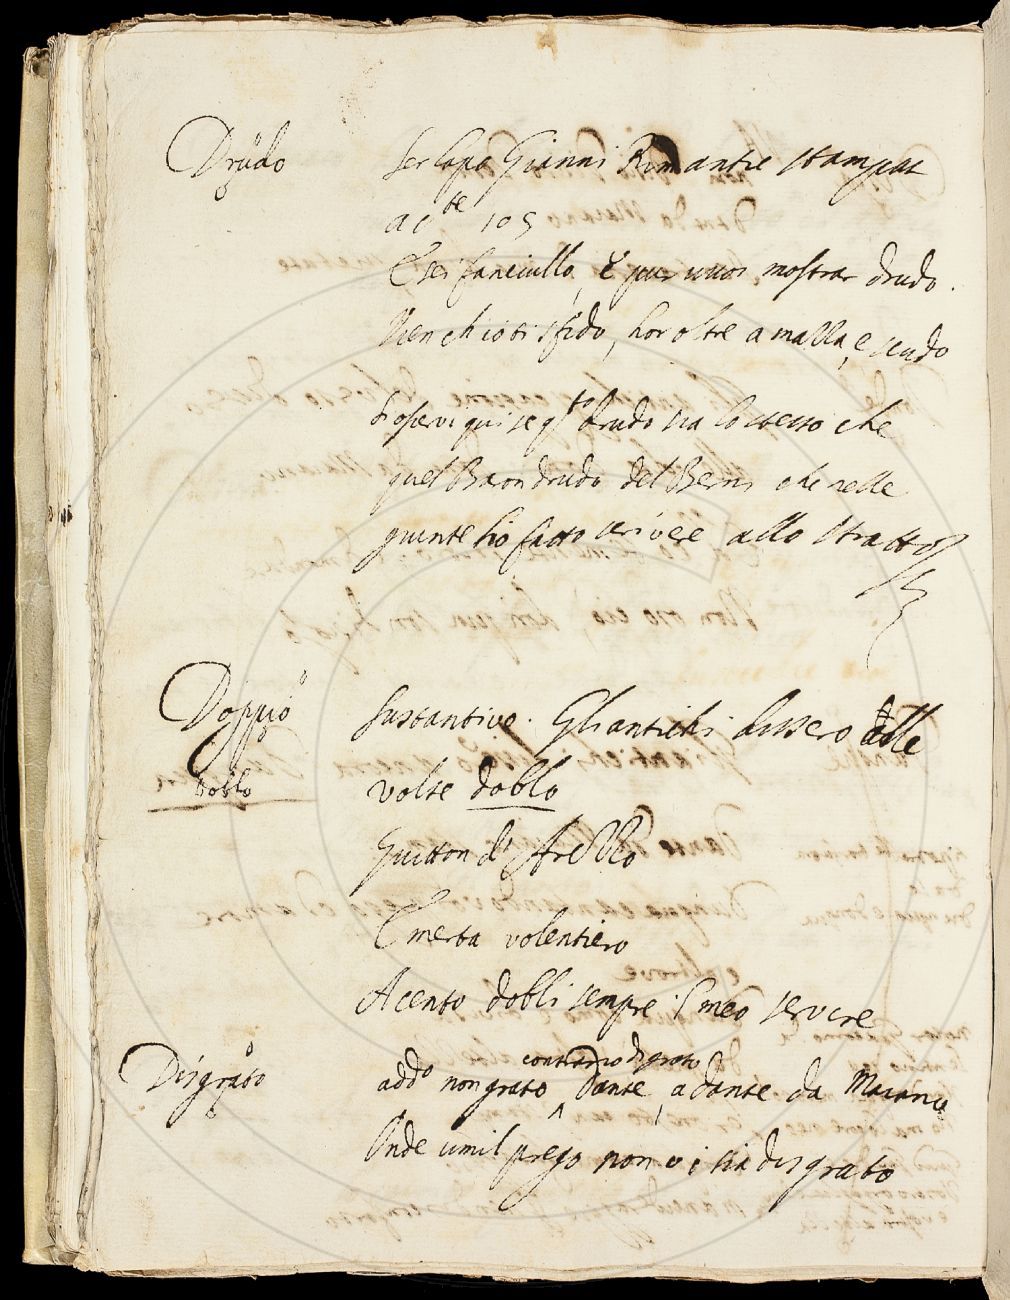 Drudo Ser Lapo Gianni Rim antie stampat
a cte 105
E sei fanciullo, e pur vuoi mostrar drudo.
Vien ch io ti sfido, hor oltre a mazza, e scudo
Si osservi qui se qto drudo sia lo stesso che
quel Baron drudo del Berni che nelle
giunte ho fatto scrivere allo Stratto
Doppio Sustantivo. Gli antichi dissero dalle
doblo volte doblo
Guitton d' Arezzo
E merta volentiero
A cento dobli sempre il meo servire
Disgrato addo non grato contrario di grato Dante, a dante da Maiano
Onde umil prego non vi sia disgrato